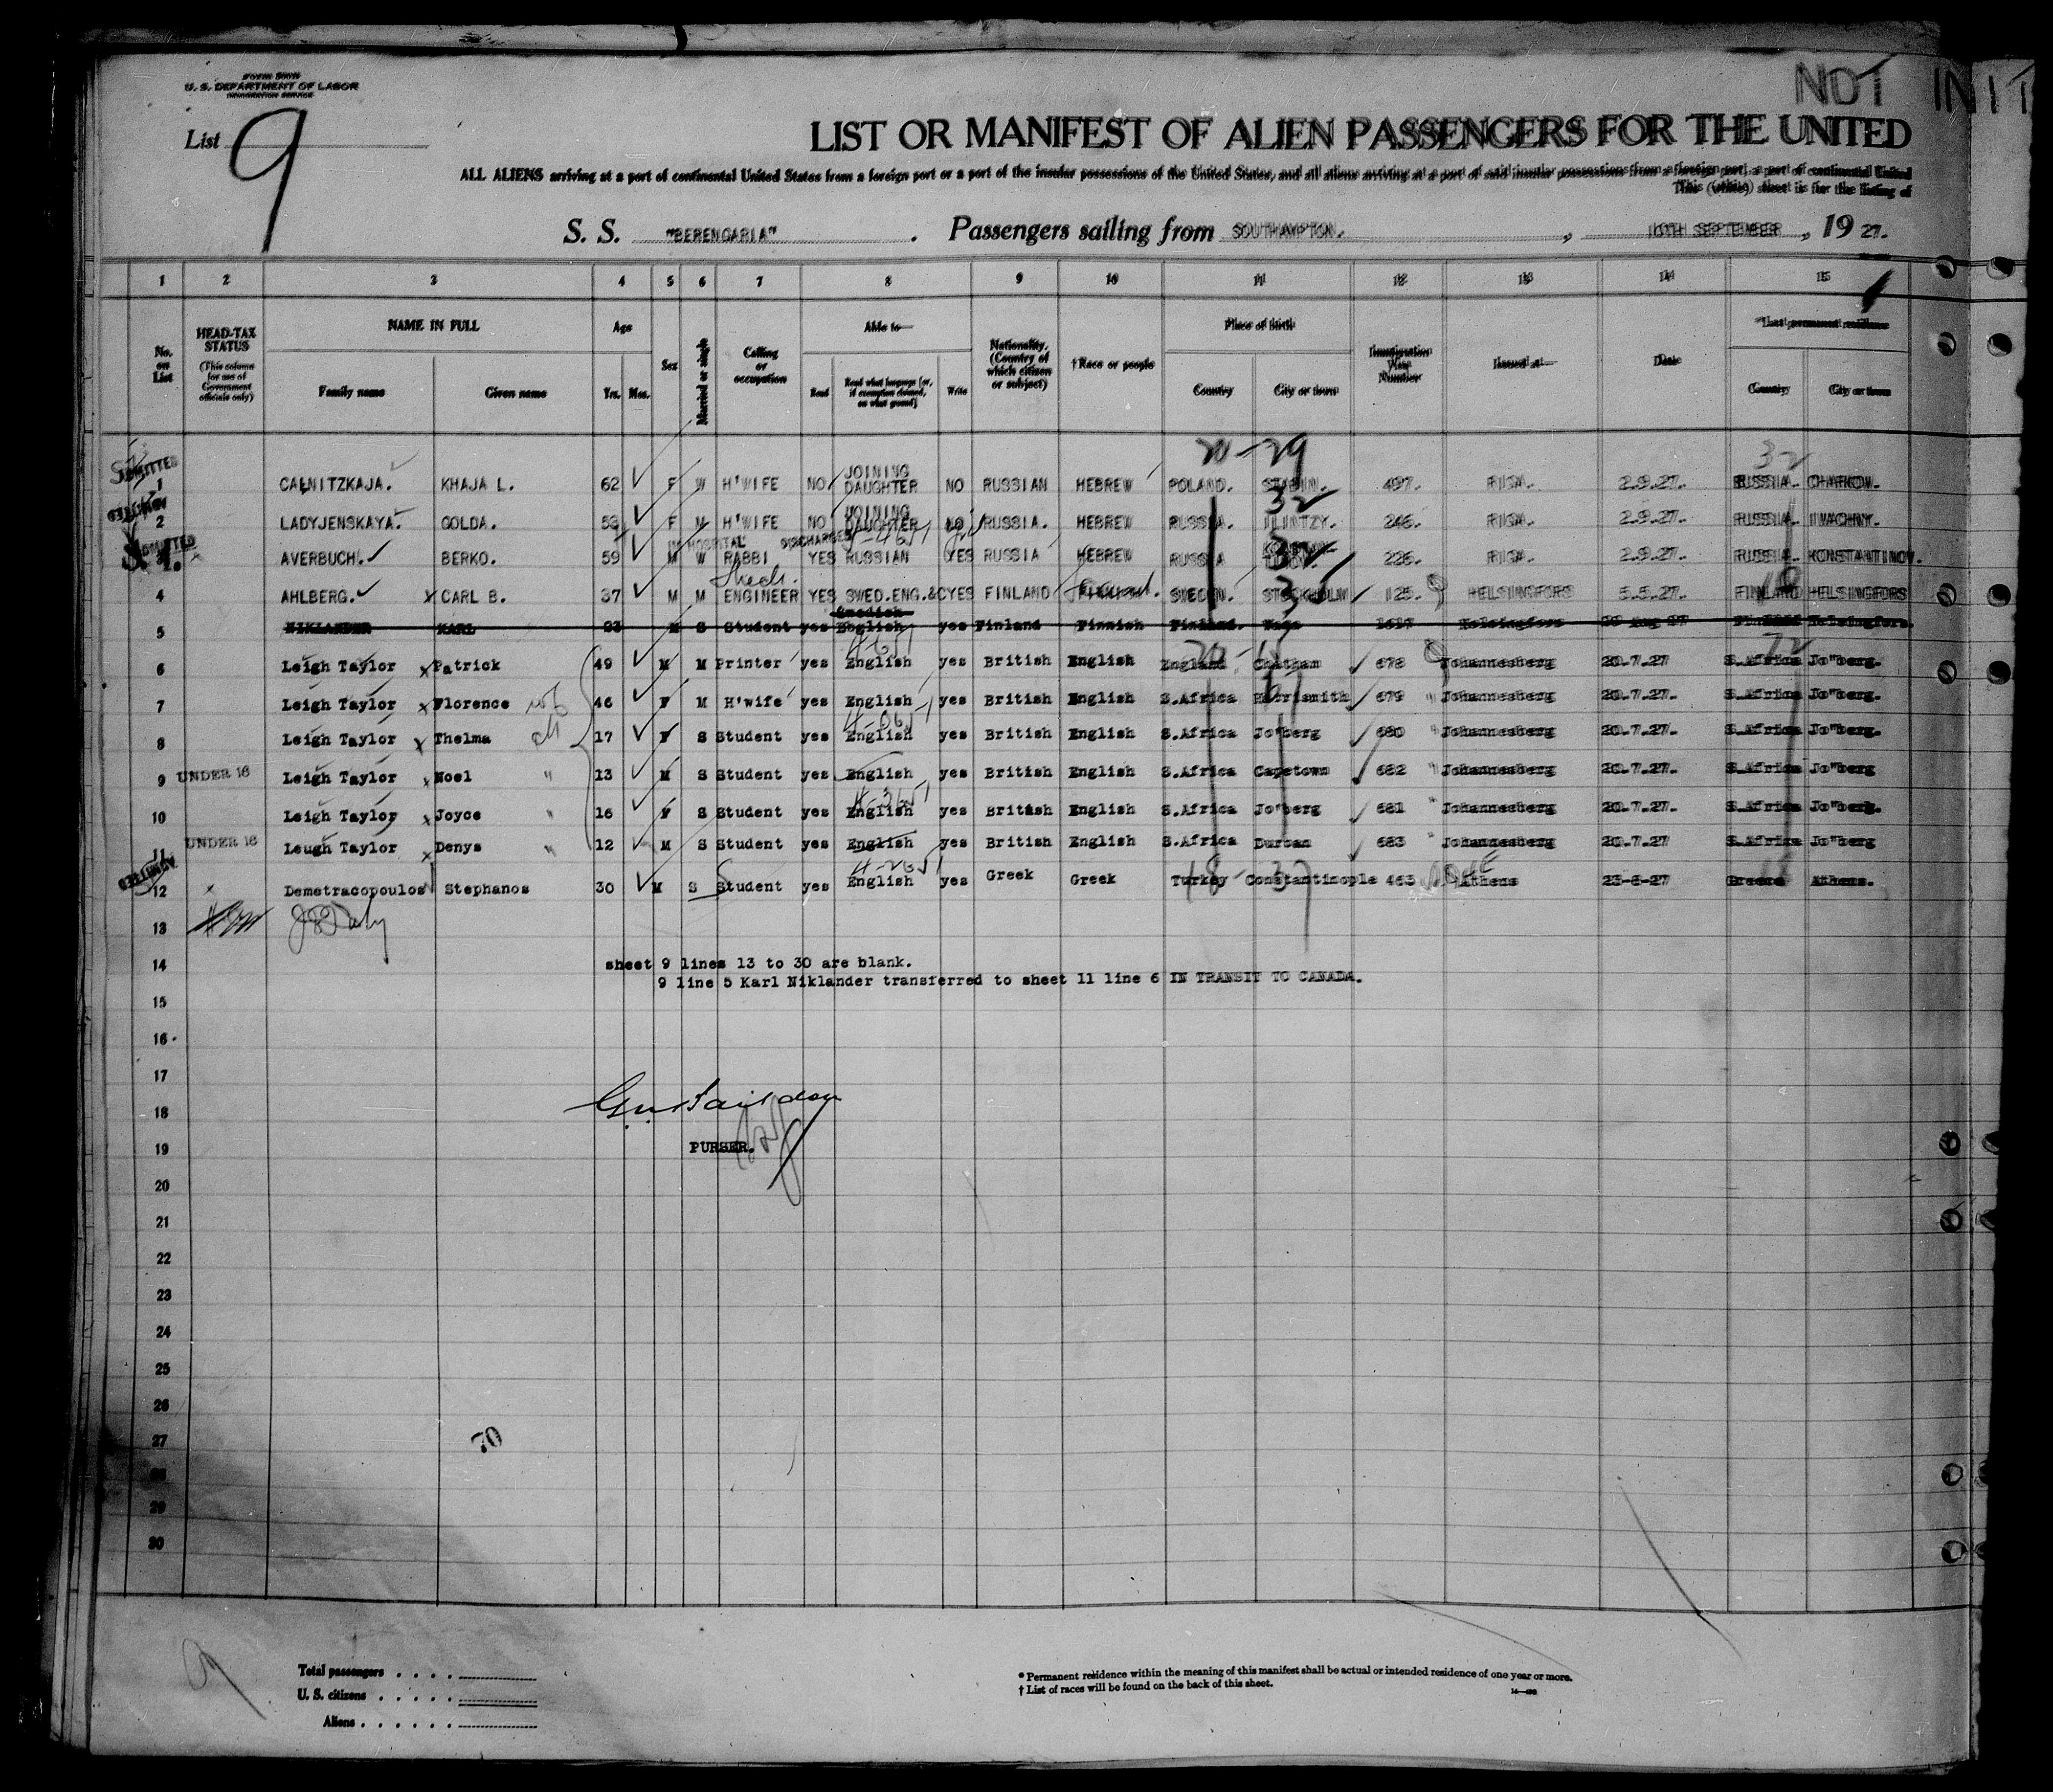 FORM 500B
U. S. DEPARTMENT OF LABOR
IMMIGRATION SERVICE
NOT INIT
List 9
LIST OR MANIFEST OF ALIEN PASSENGERS FOR THE UNITED
ALL ALIENS arriving at a port of continental United States from a foreign port or a port of the insular possessions of the United States, and all aliens arriving at a port of said insular possessions from a foreign port, a port of continental United
This (white) sheet is for the listing of
S. S. "BERENGARIA". Passengers sailing from SOUTHAMPTON., 10TH SEPTEMBER, 19 27.
1 2 3 4 5 6 7 8 9 10 11 12 13 14 15
No. on List
HEAD-TAX STATUS (This column for use of Government officials only)
NAME IN FULL Family name Given name
Age Yrs. Mos.
Sex
Married or single
Calling or occupation
Able to— Read Read what language [or, if exemption claimed, on what ground] Write
Nationality. (Country of which citizen or subject)
† Race or people
Place of birth Country City or town
Immigration Visa Number
Issued at—
Date
*Last permanent residence Country City or town
20-29 32
ADMITTED 1 CALNITZKAJA. KHAJA L. 62 F W H'WIFE NO JOINING DAUGHTER NO RUSSIAN HEBREW POLAND. 497. RIGA. 2.9.27. RUSSIA. CHARKOW.
ADMITTED 2 LADYJENSKAYA. GOLDA. F H'WIFE NO JOINING DAUGHTER NO RUSSIA. HEBREW RUSSIA. ILINTZY. 246. RIGA. 2.9.27. RUSSIA IVACHNY.
IN HOSPITAL DISCHARGED
ADMITTED AVERBUCH. BERKO. 59 M W RABBI YES RUSSIAN YES RUSSIA HEBREW RUSSIA 226. RIGA. 2.9.27. RUSSIA. KONSTANTINOV.
4 AHLBERG. X CARL B. 37 M M ENGINEER YES SWED.ENG.&C YES FINLAND SWEDEN. STOCKHOLM 125. HELSINGFORS 5.5.27. FINLAND HELSINGFORS
5 NIKLANDER KARL 23 M S Student yes Swedish English yes Finland Finnish Finland. Helsingfors 29 Aug 27 Finland Helsingfors.
6 Leigh Taylor x Patrick 49 M M Printer yes English yes British English England Chatham 678 Johannesberg 20.7.27 S.Africa Jo"berg.
7 Leigh Taylor x Florence 46 F M H'wife yes English yes British English S.Africa Harrismith 679 " Johannesberg 20.7.27. S.Africa Jo"berg.
8 Leigh Taylor x Thelma 17 F S Student yes English yes British English S.Africa Jo"berg 680 " Johannesberg 20.7.27. S.Africa Jo"berg.
9 UNDER 16 Leigh Taylor x Noel " 13 M S Student yes English yes British English S.Africa Capetown 682 " Johannesberg 20.7.27. S.Africa Jo"berg
10 Leigh Taylor x Joyce " 16 F S Student yes English yes British English S.Africa Jo"berg 681 " Johannesberg 20.7.27. S.Africa Jo"berg.
11 UNDER 16 Leugh Taylor x Denys " 12 M S Student yes English yes British English S.Africa Durban 683 " Johannesberg 20.7.27 S.Africa Jo"berg
ADMITTED 12 Demetracopoulos Stephanos 30 M S Student yes English yes Greek Greek Turkey Constantinople 463 Athens 23-8-27 Greece Athens.
13
14 sheet 9 lines 13 to 30 are blank.
9 line 5 Karl Niklander transferred to sheet 11 line 6 IN TRANSIT TO CANADA.
15
16
17
18
19 PURSER.
20
21
22
23
24
25
26
27
70
28
29
30
9
Total passengers
U. S. citizens
Aliens
* Permanent residence within the meaning of this manifest shall be actual or intended residence of one year or more.
† List of races will be found on the back of this sheet.